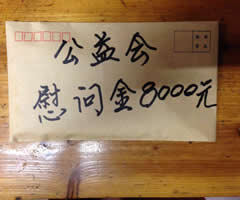 公益会
慰问金8000元